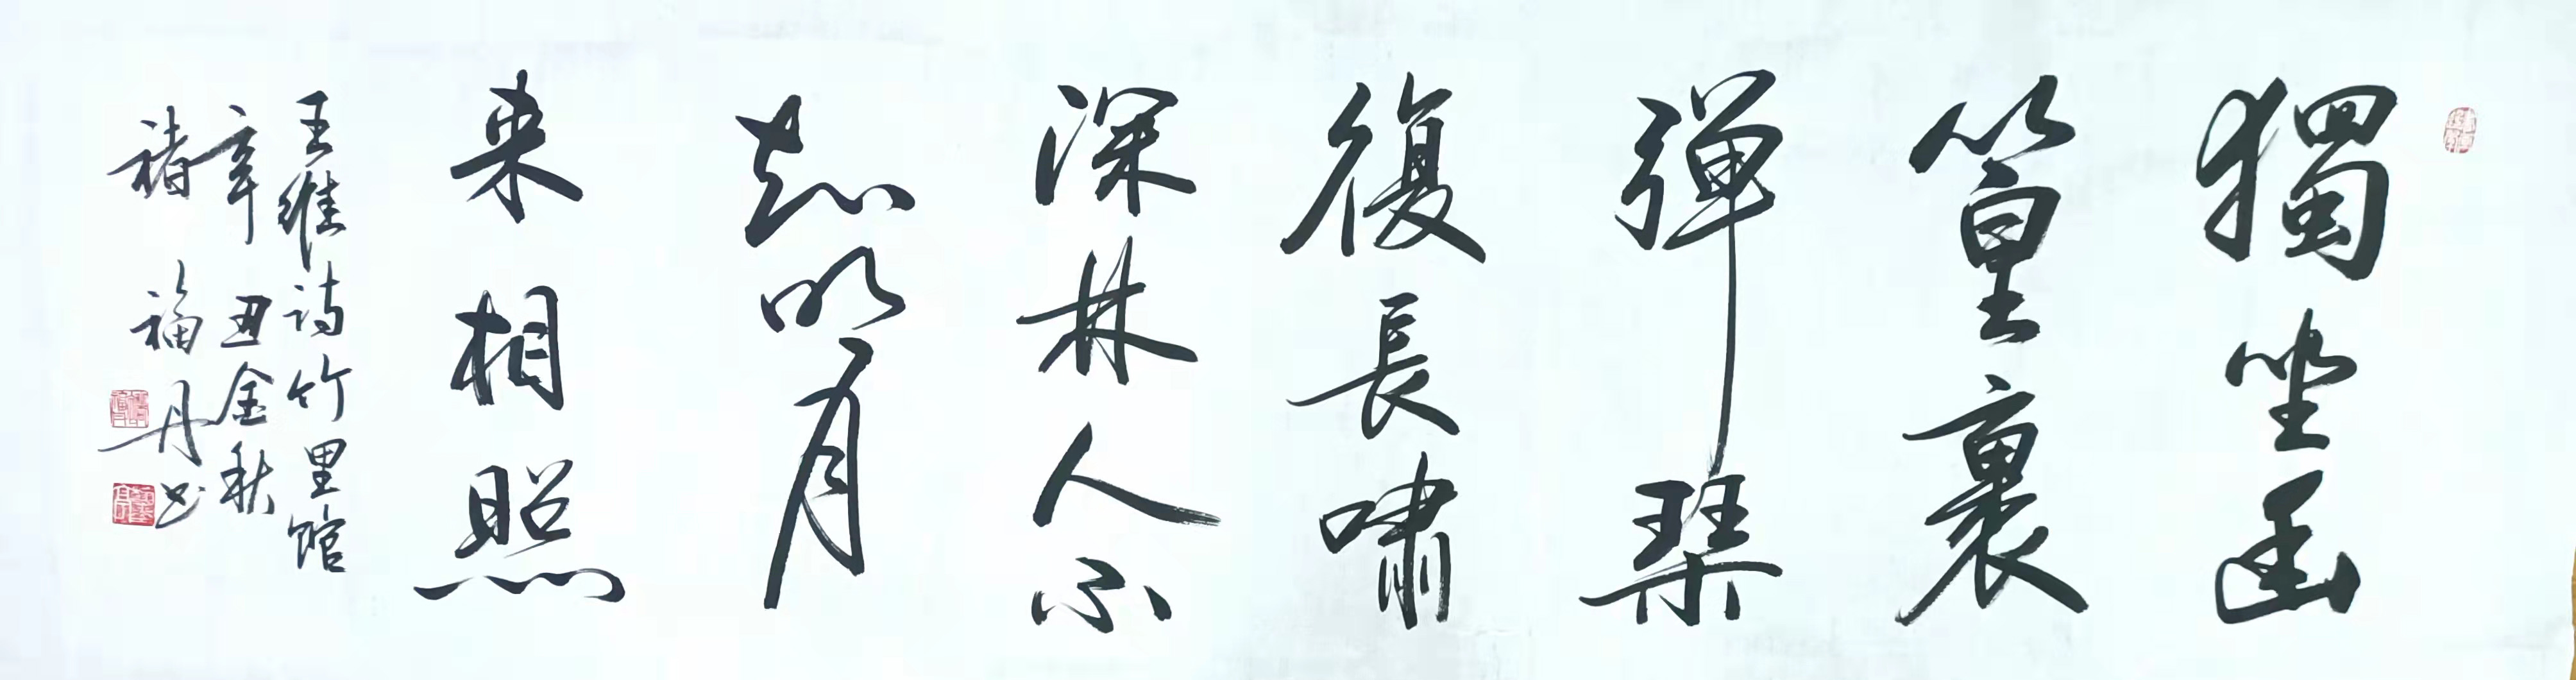 獨坐幽
篁裏
彈琹
復長嘯
深林人不
知明月
来相照
王维诗竹里馆
辛丑金秋
褚福丹书